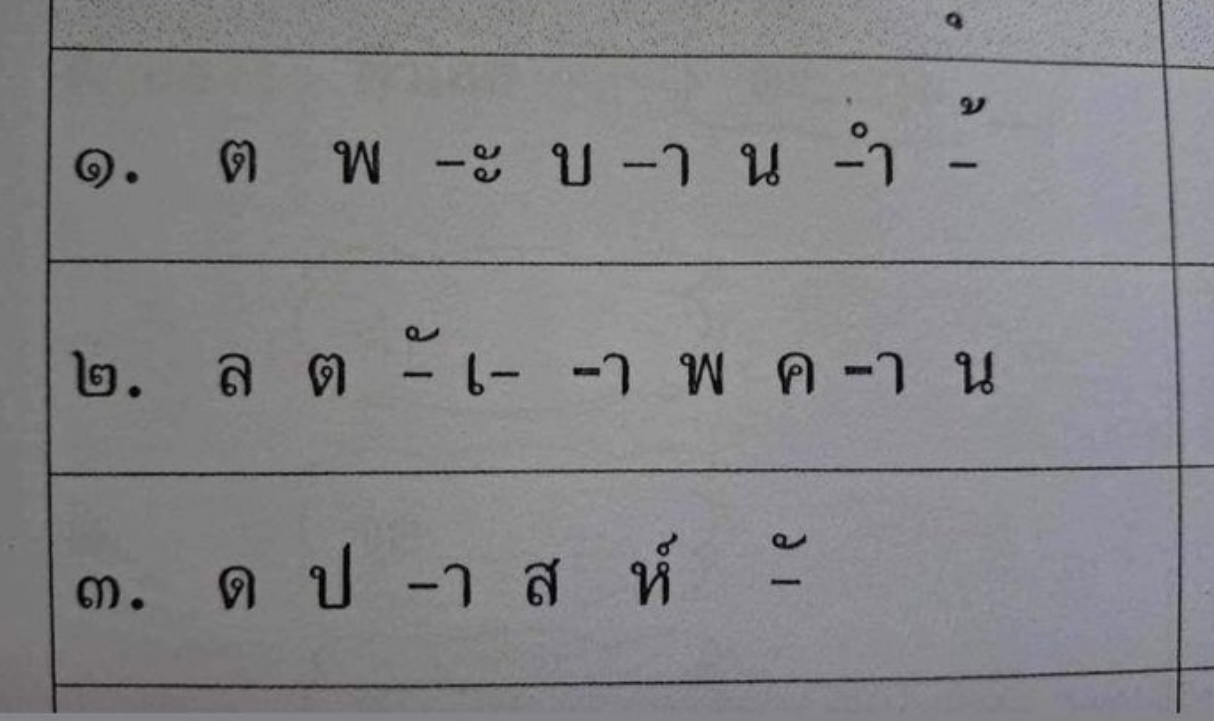 ๑. ต พ -ะ บ -า น -ำ -้
๒. ล ต -ั เ- -า พ ค -า น
๓. ด ป -า ส ห์ -ั